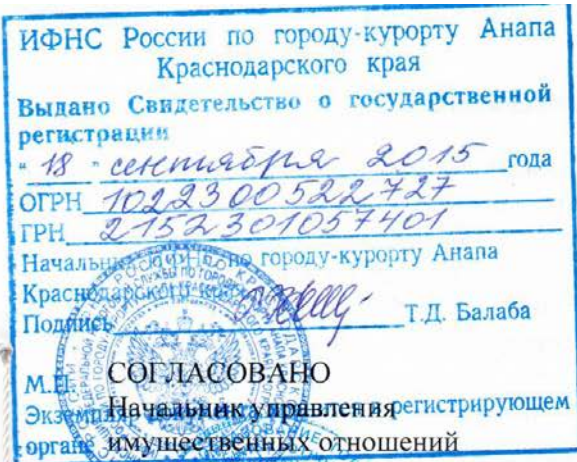 ИФНС России по городу-курорту Анапа
Краснодарского края
Выдано Свидетельство о государственной
регистрации
" 18 " сентября 2015 года
ОГРН 1022300522727
ГРН 2152301057401
Начальник городу-курорту Анапа
Краснодарского края
Подпись Т.Д. Балаба
М.П. СОГЛАСОВАНО
Экземпляр Начальник управления регистрирующем
органе имущественных отношений